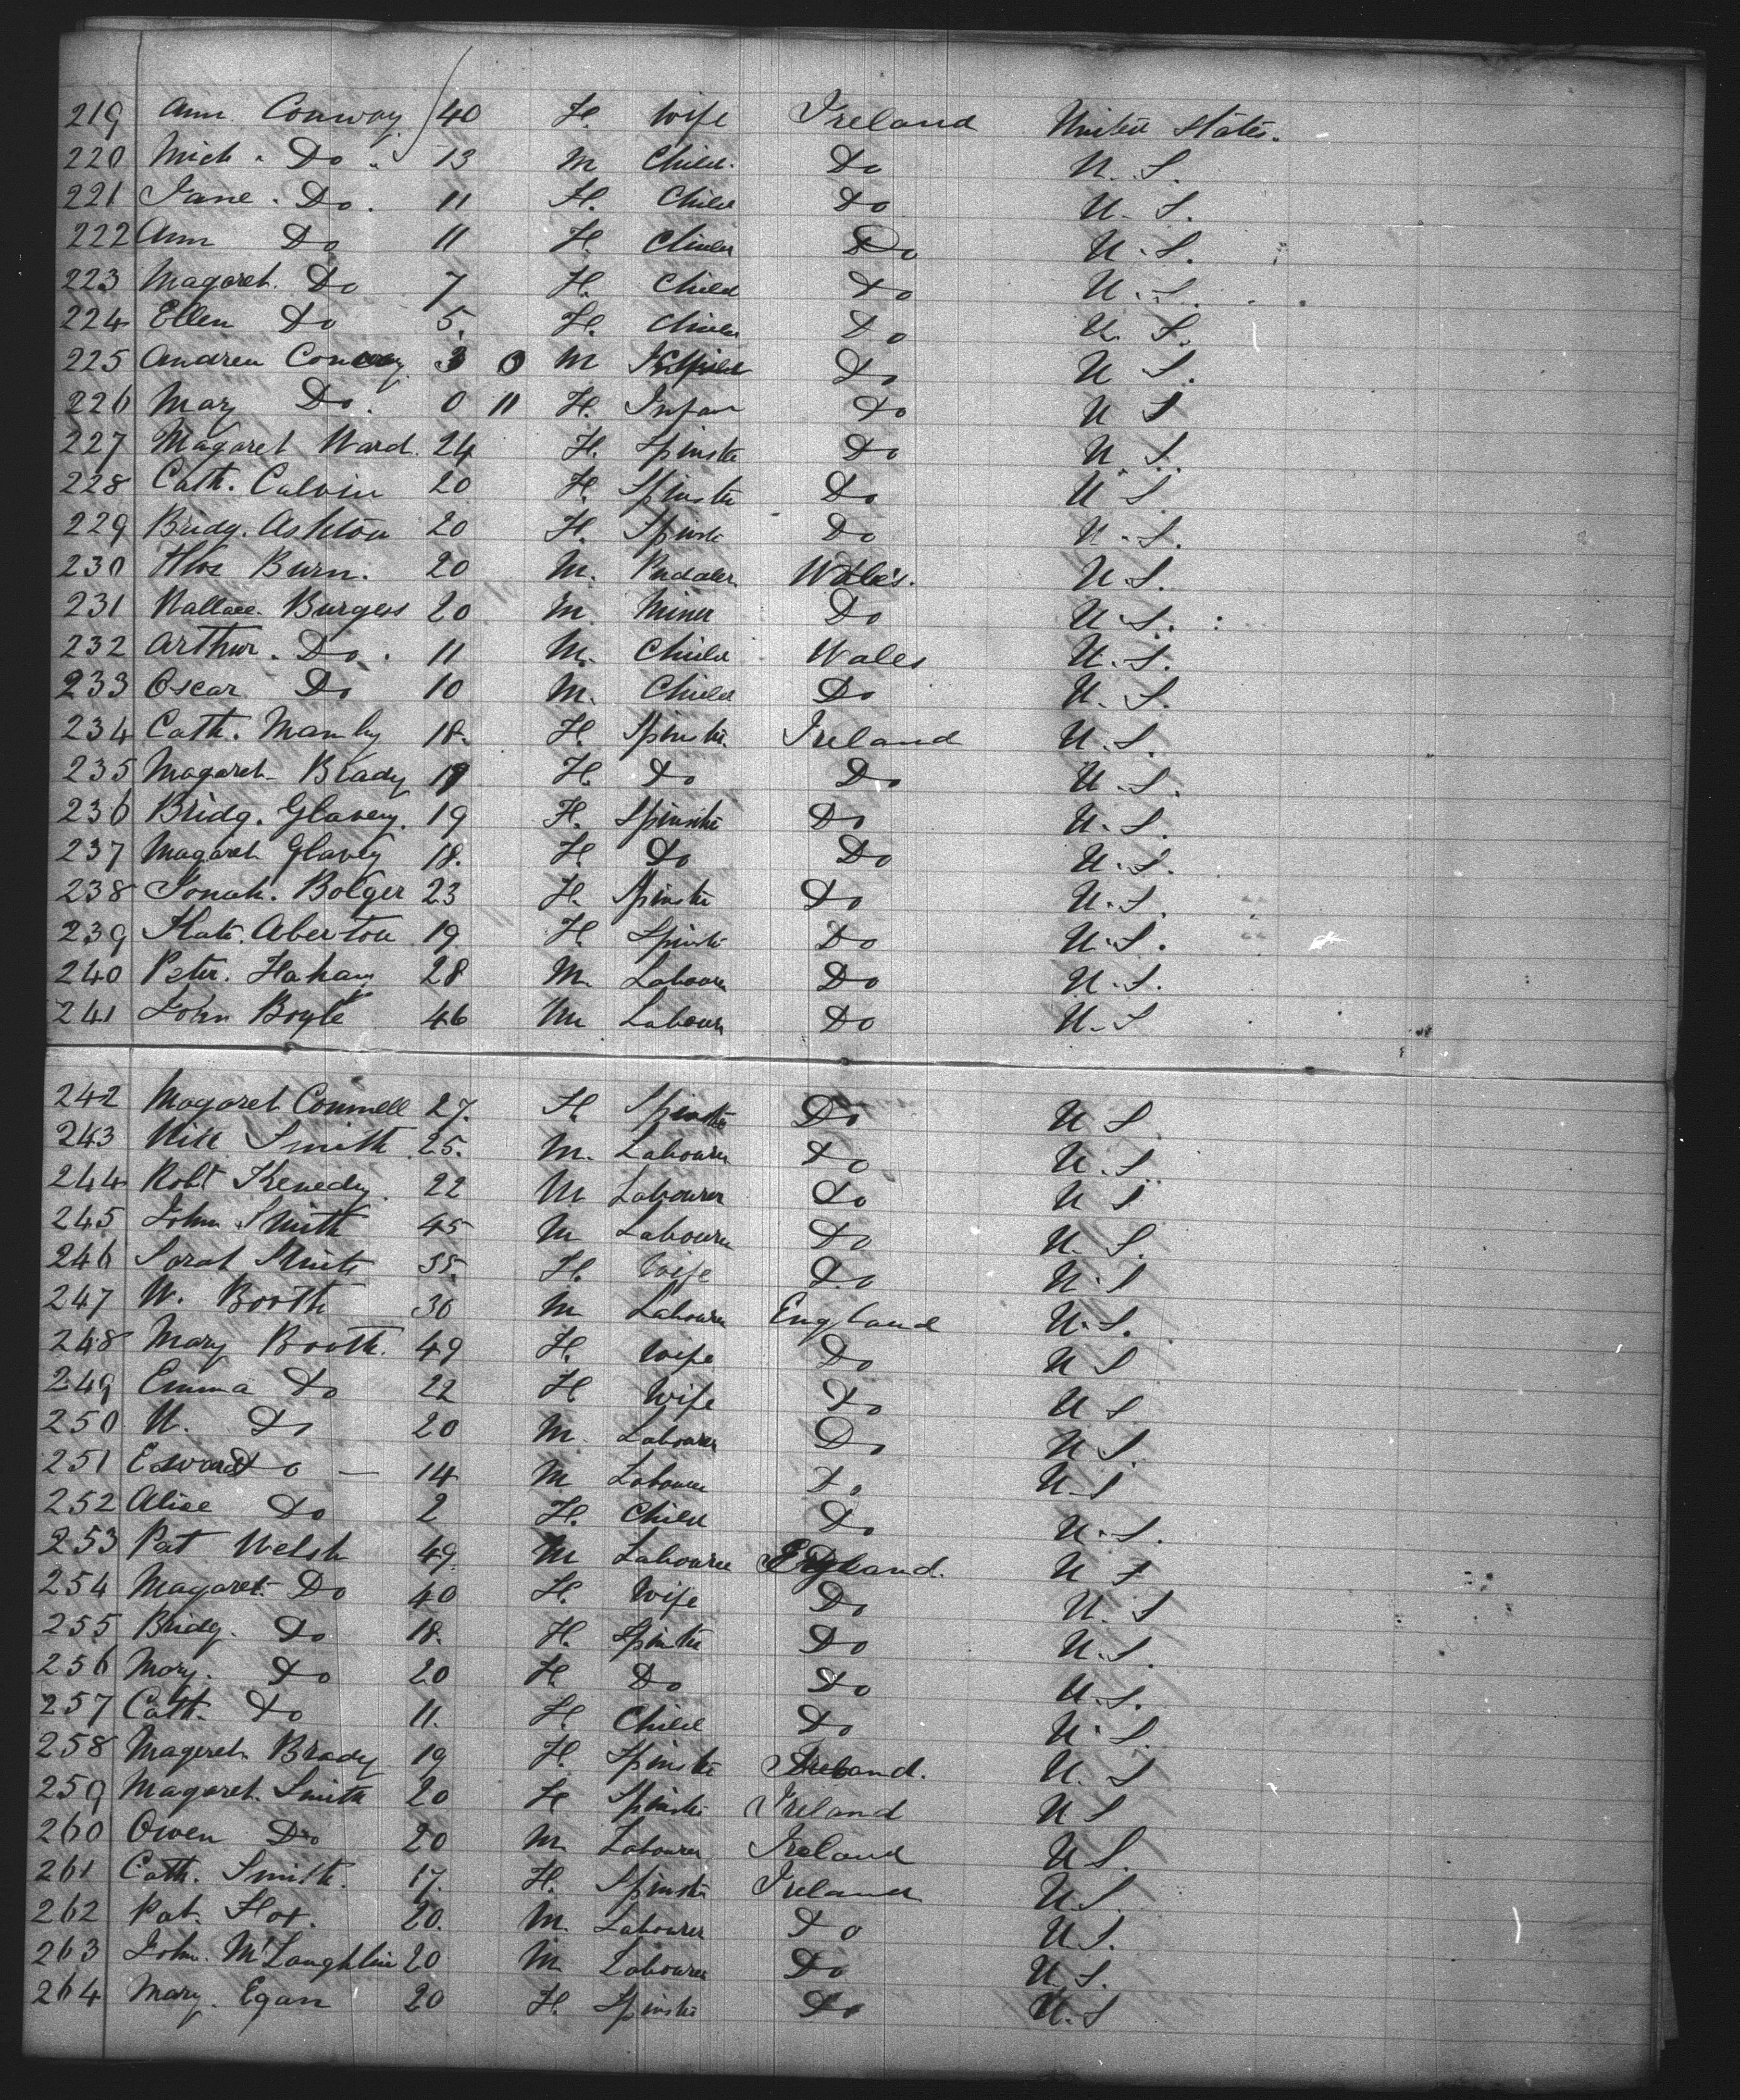 219 Ann Conway 40 F. Wife Ireland United States.
220 Mich. Do. 13 M Child. Do U. S.
221 Jane. Do. 11 F. Child Do U. S.
222 Ann Do 11 F. Child Do U. S.
223 Magaret. Do 7 F. Child Do U. S.
224 Ellen Do 5. F. Child Do U. S.
225 Andrew Conway 3 0 M Child Do U S.
226 Mary Do. 0 11 F. Infan Do U S
227 Magaret Ward. 24 F. Spinste Do U S.
228 Cath. Calvin 20 F. Spinste Do U S.
229 Bridg. Ashton 20 F. Spinst Do U. S.
230 Thos Burn. 20 M. Pudaler Wales. U S.
231 Wallace Burgess 20 M. Miner Do U. S.
232 Arthur. Do. 11 M. Child Wales U. S.
233 Oscar Do 10 M. Child Do U. S.
234 Cath. Manly 18. F. Spinste. Ireland U. S.
235 Magaret Brady 19 F. Do Do U. S.
236 Bridg. Glavey. 19 F. Spinste Do U. S.
237 Magaret Glavey 18. F. Do Do U. S.
238 Bolger 23 F. Spinste Do U. S.
239 Kate. Aberton 19 F. Spinste Do U. S.
240 Peter. 28 M. Laboure Do U. S.
241 John Boyle 46 M Labour Do U. S
242 Magaret Connell 27. F. Spinste Do U S.
243 Will Smith 25. M. Laboure Do U. S
244 Robt Kenedy. 22 M Labourer Do U S
245 John Smith 45 M Laboure Do U. S.
246 Sarah Smith 35. F. Wife Do U. S
247 W. Booth 30 M Laboure England U. S.
248 Mary Booth. 49 F. Wife Do U S
249 Emma Do 22 F. Wife Do U S
250 W. Do 20 M. Labourer Do U S.
251 Edward Do — 14 M Laboure Do U. S
252 Alice Do 2 F. Child Do U. S.
253 Pat Welsh 49. M Laboure England. U S
254 Magaret Do 40 F. Wife Do U. S
255 Bridg. Do 18. F. Spinste Do U. S.
256 Mary. Do 20 F. Do Do U. S.
257 Cath. Do 11. F. Child Do U. S.
258 Mageret Brady 19 F. Spinste Ireland. U. S
259 Magaret. Smith 20 F Spinste Ireland U S
260 Owen Do 20 M. Labourer Ireland U S.
261 Cath. Smith. 17. F. Spinste Ireland U. S.
262 Pat. 20. M. Labourer Do U. S.
263 John. McLaughlin 20 M Labourer Do U. S.
264 Mary. Egan 20 F. Spinste Do U. S